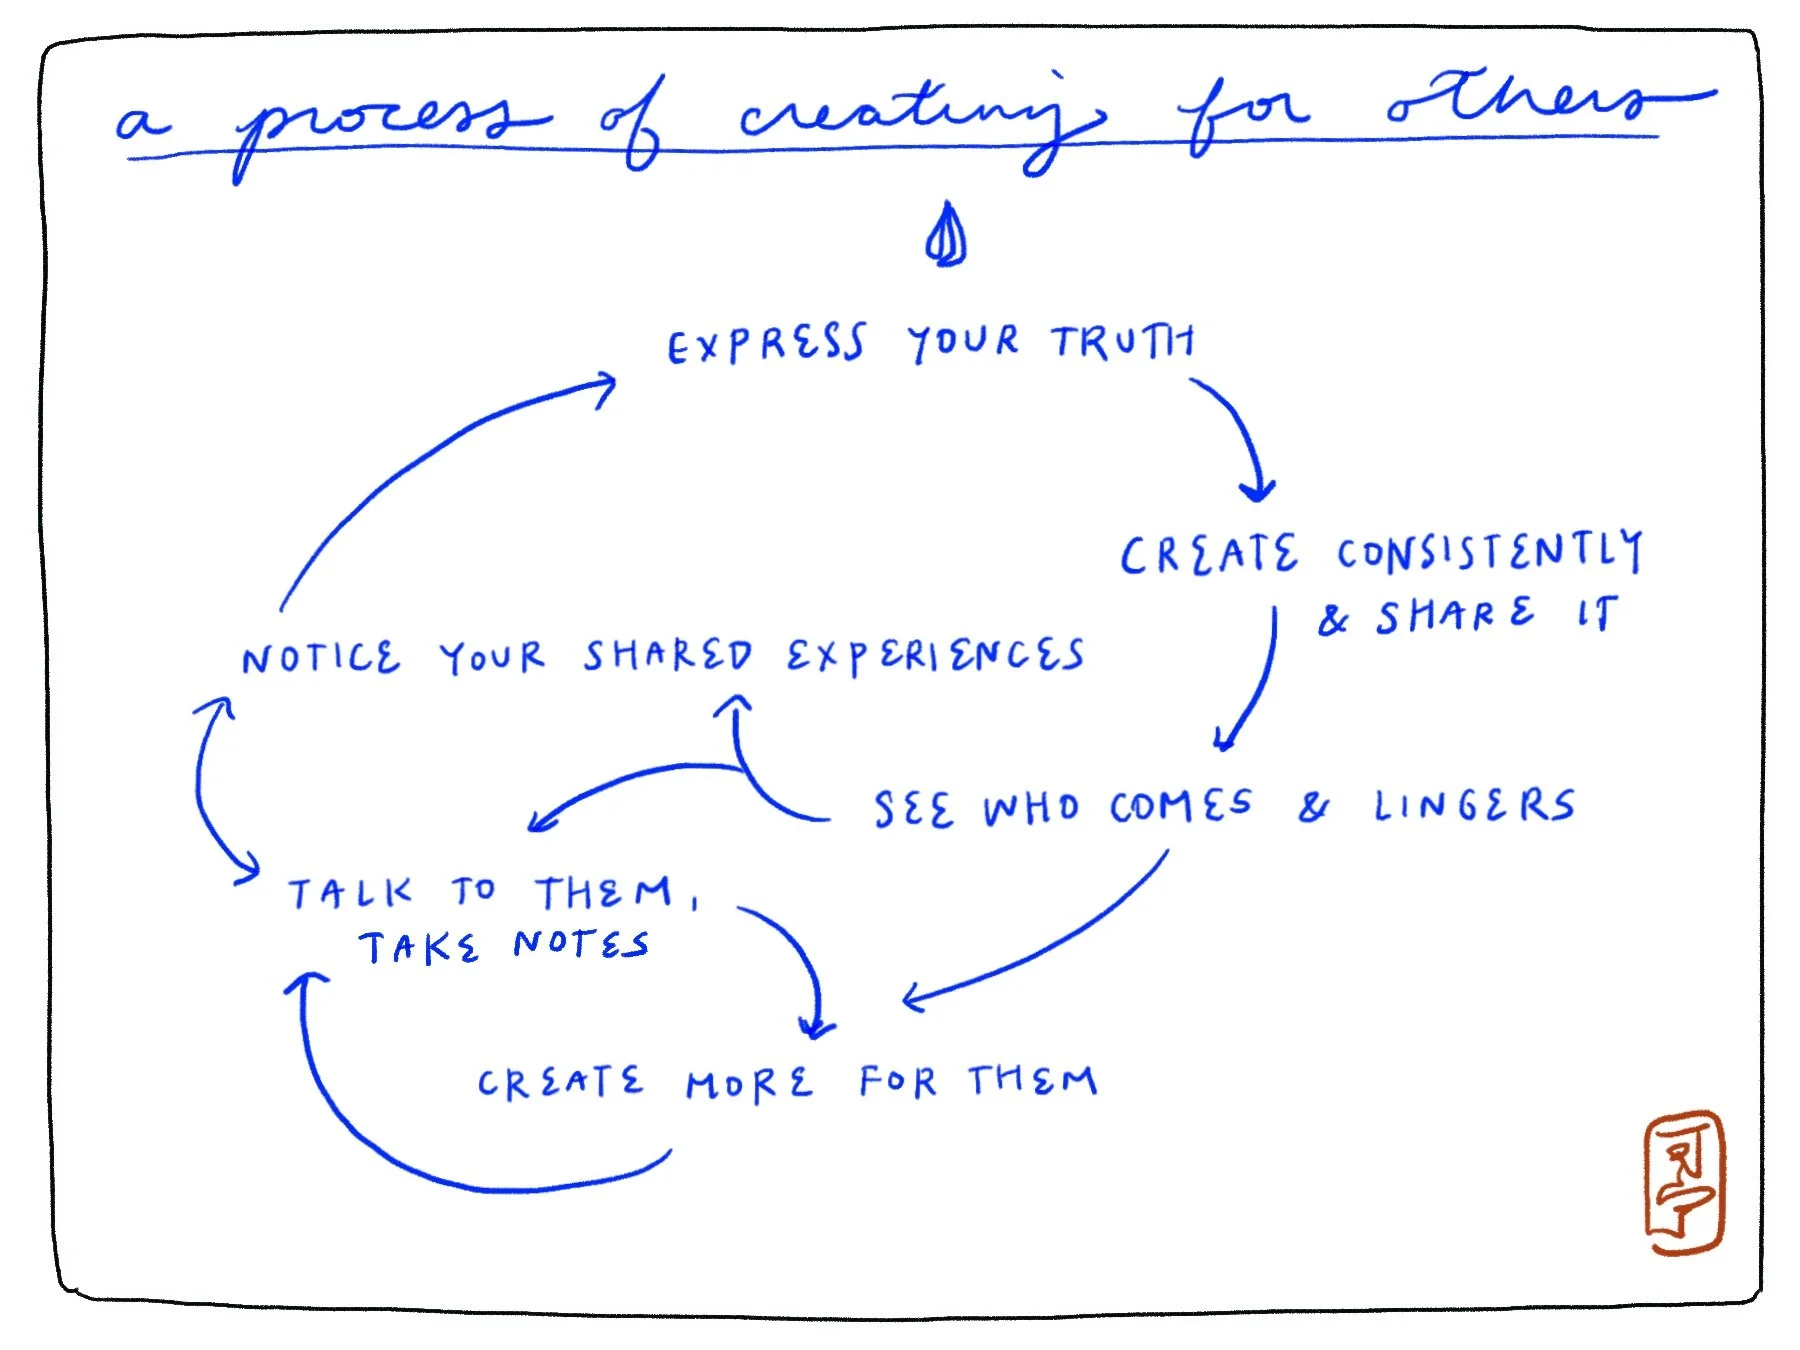 a process of creating for others
EXPRESS YOUR TRUTH
CREATE CONSISTENTLY
& SHARE IT
NOTICE YOUR SHARED EXPERIENCES
SEE WHO COMES & LINGERS
TALK TO THEM,
TAKE NOTES
CREATE MORE FOR THEM